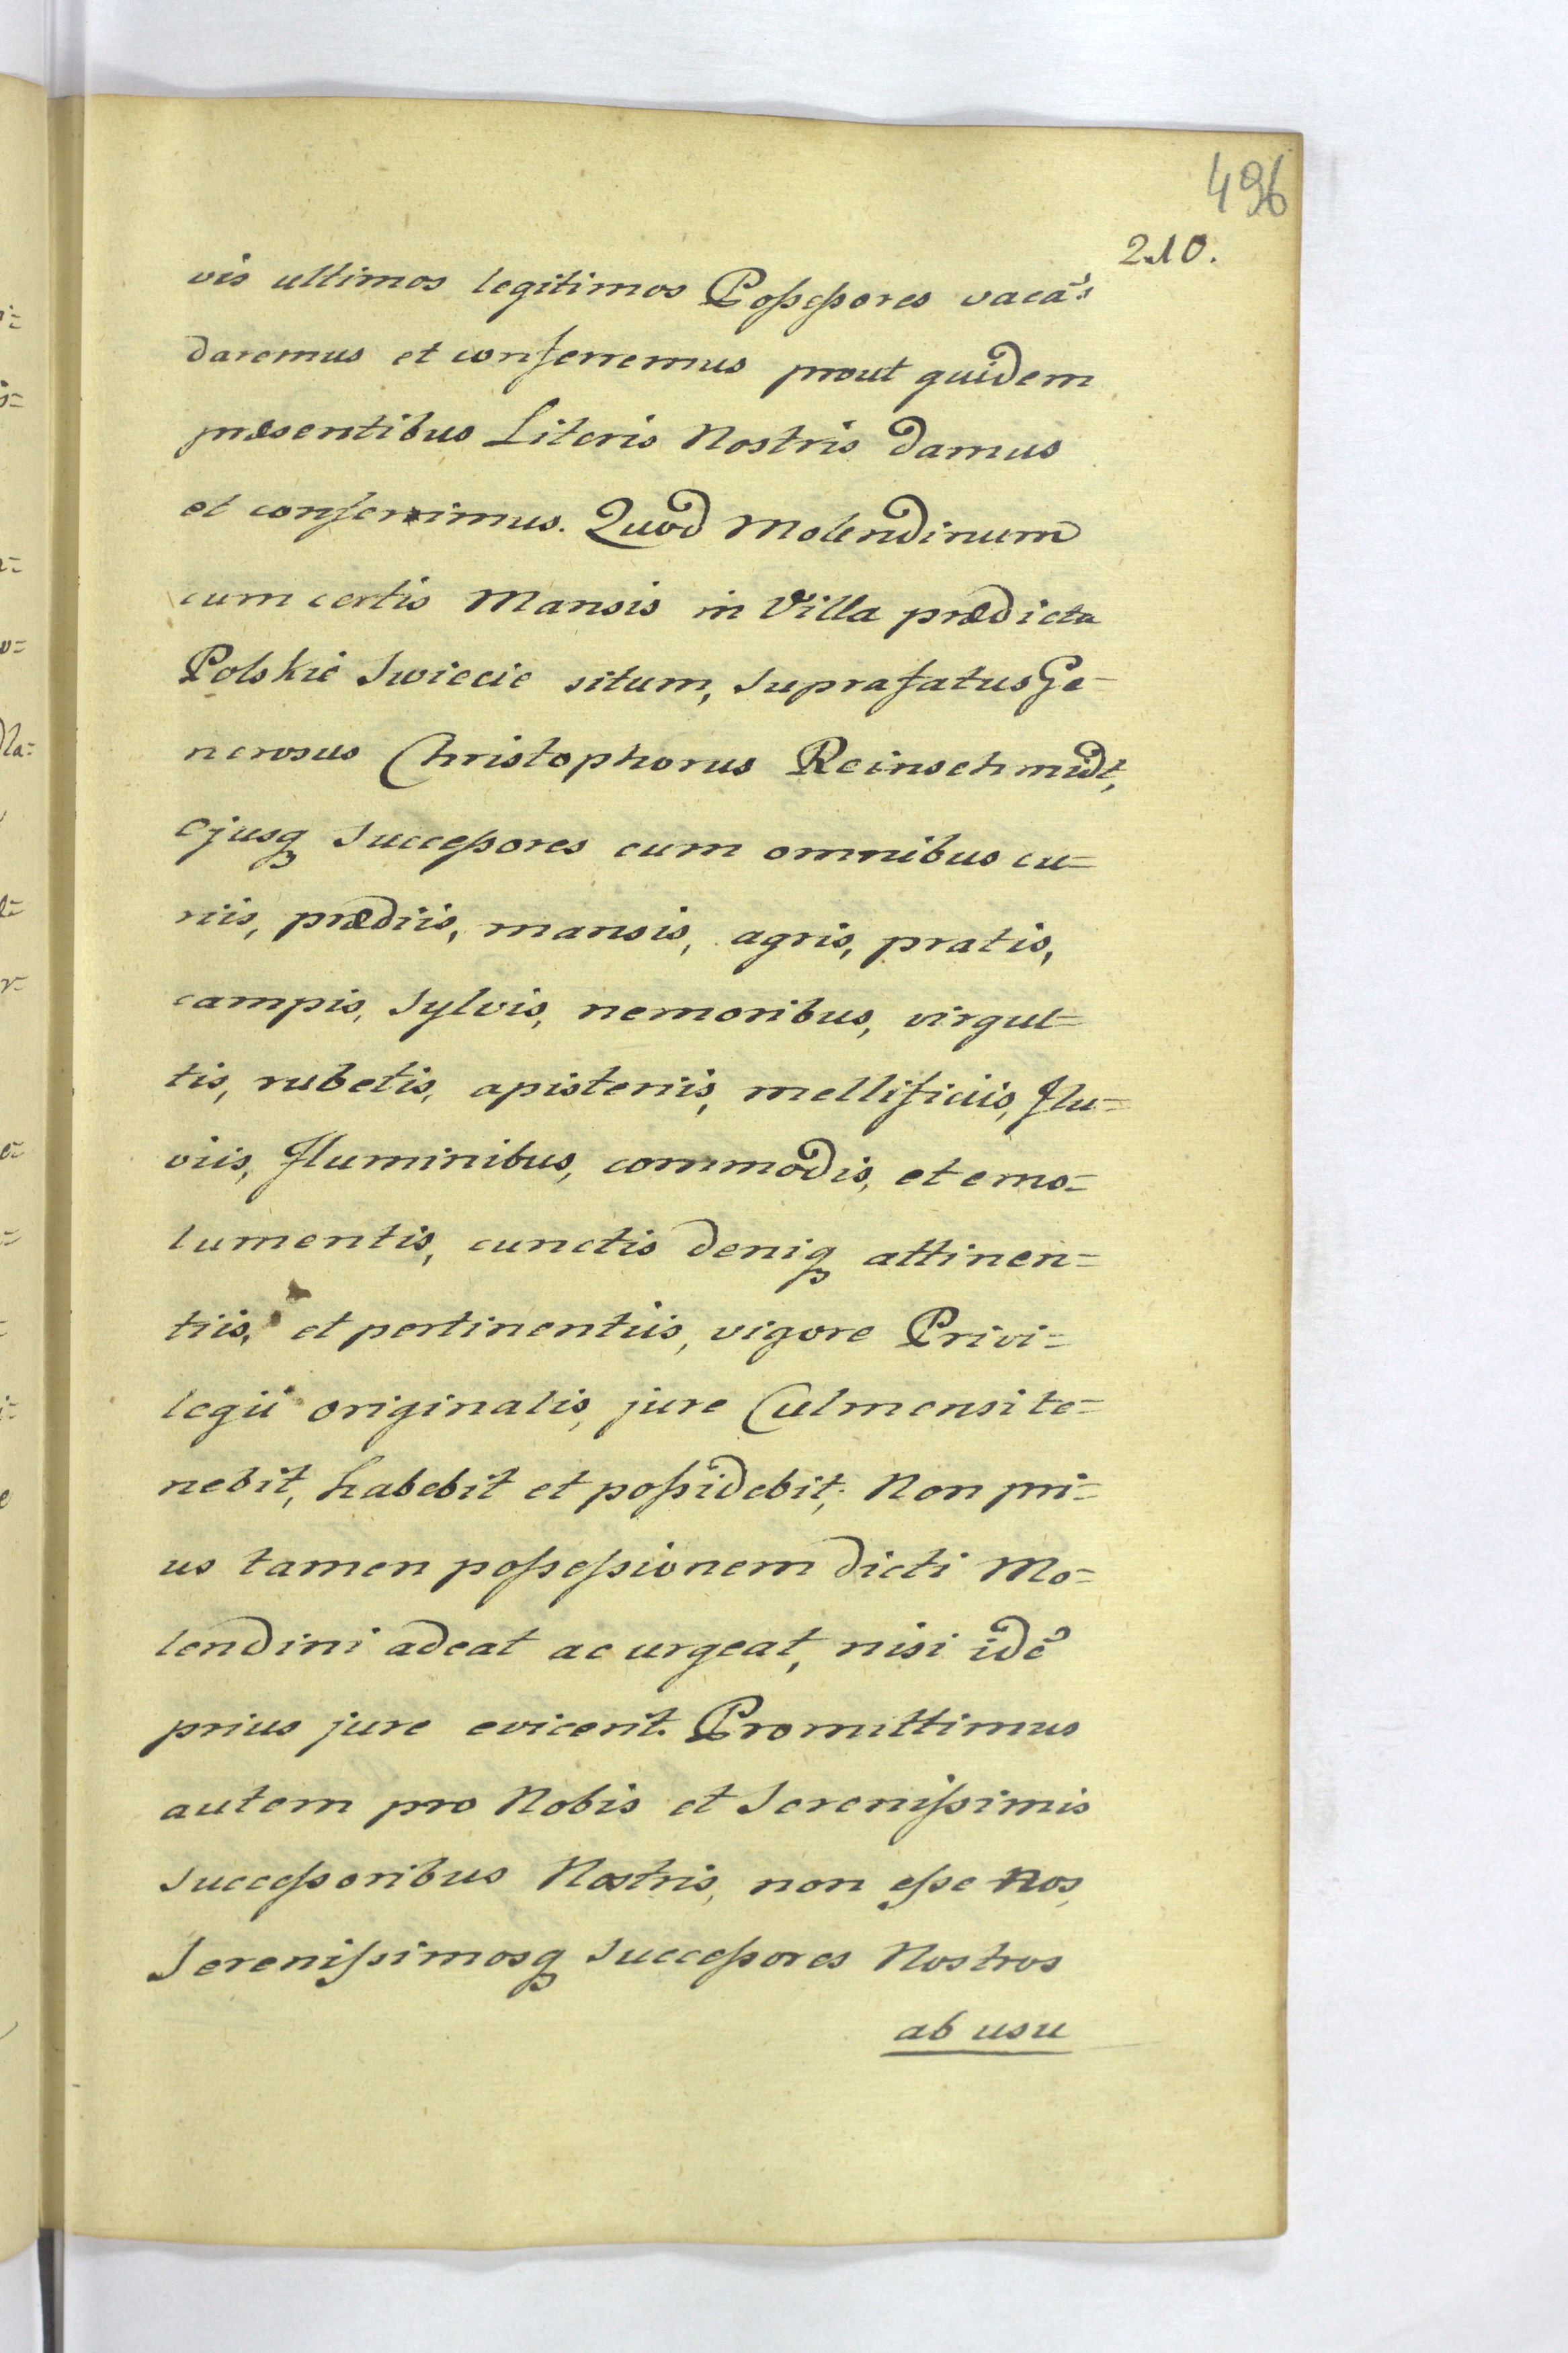 496
210.
vis ultimos legitimos Poſseſsores vacā's
daremus et conferremus prout quidem
præsentibus Literis Nostris damus
et conferrimus. Quod Molendinum
cum certis Mansis in Villa prædicta
Polskie Swiecie situm, Suprafatus Ge-
nerosus Christophorus Reinschmidt,
Ejusq Succeſsores cum omnibus cu=
riis, prædiis, mansis, agris, pratis,
campis, Sylvis, nemoribus, virgul=
tis, rubetis, apisteriis, mellificiis, flu=
viis, fluminibus, commodis, et emo=
lumentis, cunctis deniq attinen=
tiis, et pertinentiis, vigore Privi=
legii originalis, jure Culmensi te=
nebit, habebit et poſsidebit; Non pri=
us tamen poſseſsionem dicti Mo=
lendini adeat ac urgeat, nisi idē
prius jure evicerit. Promittimus
autem pro Nobis et Sereniſsimis
Succeſsoribus Nostris, non eſse Nos,
Sereniſsimosq Succeſsores Nostros
ab usu